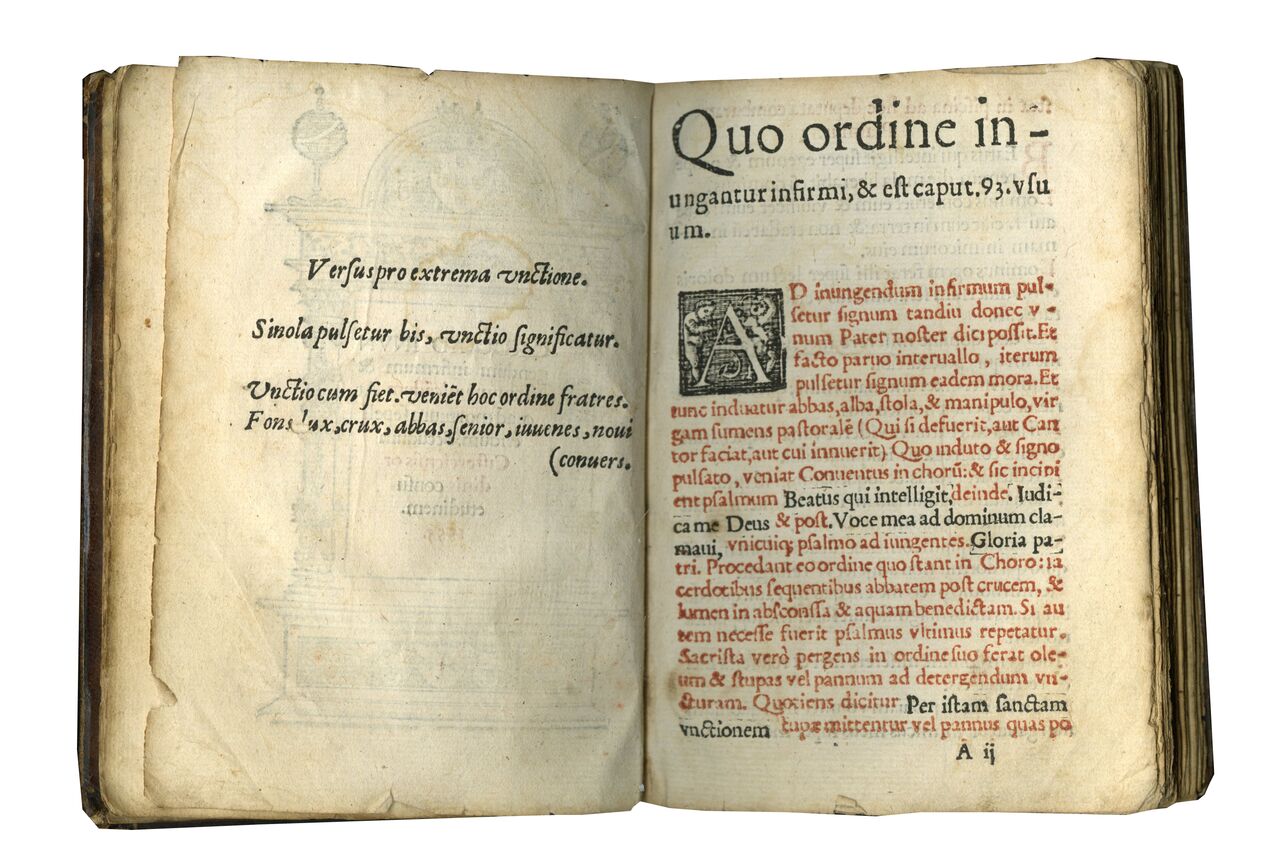 Verſus pro extrema vnctione.
Sinola pulſetur bis, vnctio ſignificatur.
Vnctio cum fiet. veniẽt hoc ordine fratres.
Fons lux, crux, abbas, ſenior, iuuenes, noui
(conuers.
Quo ordine in-
ungantur infirmi, & eſt caput. 93. vſu
um.
AD inungendum infirmum pul-
ſetur ſignum tandiu donec v-
num Pater noſter dici poſſit. Et
facto paruo interuallo, iterum
pulſetur ſignum eadem mora. Et
tunc induatur abbas, alba, ſtola, & manipulo, vir
gam ſumens paſtoralẽ (Qui ſi defuerit, aut Can
tor faciat, aut cui innuerit) Quo induto & ſigno
pulſato, veniat Conuentus in chorũ: & ſic incipi
ent pſalmum Beatus qui intelligit, deinde. Iudi-
ca me Deus & poſt. Voce mea ad dominum cla-
maui, vnicuiq; pſalmo ad iungentes. Gloria pa-
tri. Procedant eo ordine quo ſtant in Choro: ſa
cerdotibus ſequentibus abbatem poſt crucem, &
lumen in abſconſſa & aquam benedictam. Si au
tem neceſſe fuerit pſalmus vltimus repetatur.
Sacriſta verò pergens in ordine ſuo ferat ole-
um & ſtupas vel pannum ad detergendum vn-
cturam. Quotiens dicitur Per iſtam ſanctam
vnctionem tupæ mittentur vel pannus quas po
A ij